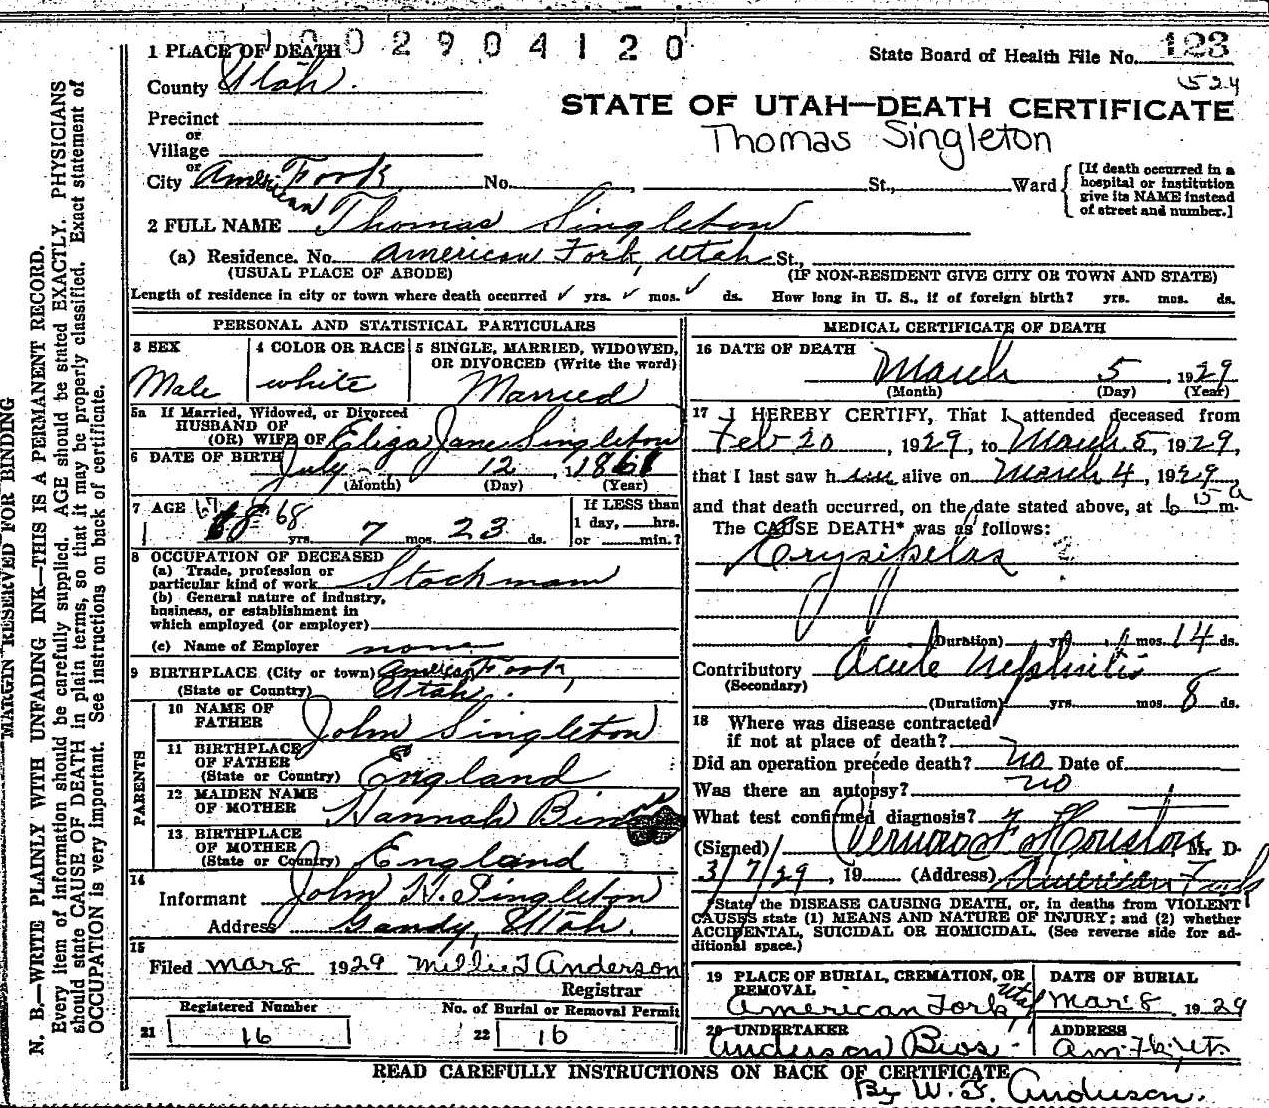 1 PLACE OF DEATH 0 0 2 9 0 4 1 2 0
State Board of Health File No. 123
County Utah.
524
Precinct
or
Village
or
City American Fork No. , St., Ward
STATE OF UTAH—DEATH CERTIFICATE
Thomas Singleton
[If death occurred in a
hospital or institution
give its NAME instead
of street and number.]
2 FULL NAME Thomas Singleton
(a) Residence. No. American Fork, Utah St.,
(USUAL PLACE OF ABODE) (IF NON-RESIDENT GIVE CITY OR TOWN AND STATE)
Length of residence in city or town where death occurred ✓ yrs. ✓ mos. ✓ ds. How long in U. S., if of foreign birth? yrs. mos. ds.
PERSONAL AND STATISTICAL PARTICULARS
3 SEX 4 COLOR OR RACE 5 SINGLE, MARRIED, WIDOWED,
OR DIVORCED (Write the word)
Male white Married
5a If Married, Widowed, or Divorced
HUSBAND OF
(OR) WIFE OF Eliza Jane Singleton
6 DATE OF BIRTH July 12, 1861
(Month) (Day) (Year)
7 AGE 67 68 68 yrs. 7 mos. 23 ds.
If LESS than
1 day, hrs.
or min.?
8 OCCUPATION OF DECEASED
(a) Trade, profession or
particular kind of work Stockman
(b) General nature of industry,
business, or establishment in
which employed (or employer)
(c) Name of Employer none
9 BIRTHPLACE (City or town) American Fork,
(State or Country) Utah.
PARENTS
10 NAME OF
FATHER John Singleton
11 BIRTHPLACE
OF FATHER
(State or Country) England
12 MAIDEN NAME
OF MOTHER Hannah
13. BIRTHPLACE
OF MOTHER
(State or Country) England
14
Informant John H. Singleton
Address Gandy, Utah.
15
Filed mar 8 1929 Millie T Anderson
Registrar
Registered Number No. of Burial or Removal Permit
21 16 22 16
MEDICAL CERTIFICATE OF DEATH
16 DATE OF DEATH
March 5, 1929
(Month) (Day) (Year)
17 I HEREBY CERTIFY, That I attended deceased from
Feb 20, 1929, to March 5, 1929,
that I last saw h im alive on March 4, 1929,
and that death occurred, on the date stated above, at 6 15 a m.
The CAUSE DEATH* was as follows:
Erysipelas ?
(Duration) yrs. mos. 14 ds.
Contributory Acute Nephritis
(Secondary)
(Duration) yrs. mos. 8 ds.
18 Where was disease contracted
if not at place of death?
Did an operation precede death? no Date of
Was there an autopsy? no
What test confirmed diagnosis?
(Signed) Vernon F Houston M. D.
3/7/29, 19 (Address) American Fork
*State the DISEASE CAUSING DEATH, or, in deaths from VIOLENT
CAUSES state (1) MEANS AND NATURE OF INJURY; and (2) whether
ACCIDENTAL, SUICIDAL OR HOMICIDAL. (See reverse side for ad-
ditional space.)
19 PLACE OF BURIAL, CREMATION, OR
REMOVAL
American Fork Utah
DATE OF BURIAL
Mar 8, 1929
20 UNDERTAKER
Anderson Bros.
ADDRESS
Am. Fk, Ut.
READ CAREFULLY INSTRUCTIONS ON BACK OF CERTIFICATE
By W. F. Anderson.
MARGIN RESERVED FOR BINDING
N. B.—WRITE PLAINLY WITH UNFADING INK—THIS IS A PERMANENT RECORD.
Every item of information should be carefully supplied. AGE should be stated EXACTLY. PHYSICIANS
should state CAUSE OF DEATH in plain terms, so that it may be properly classified. Exact statement of
OCCUPATION is very important. See instructions on back of certificate.